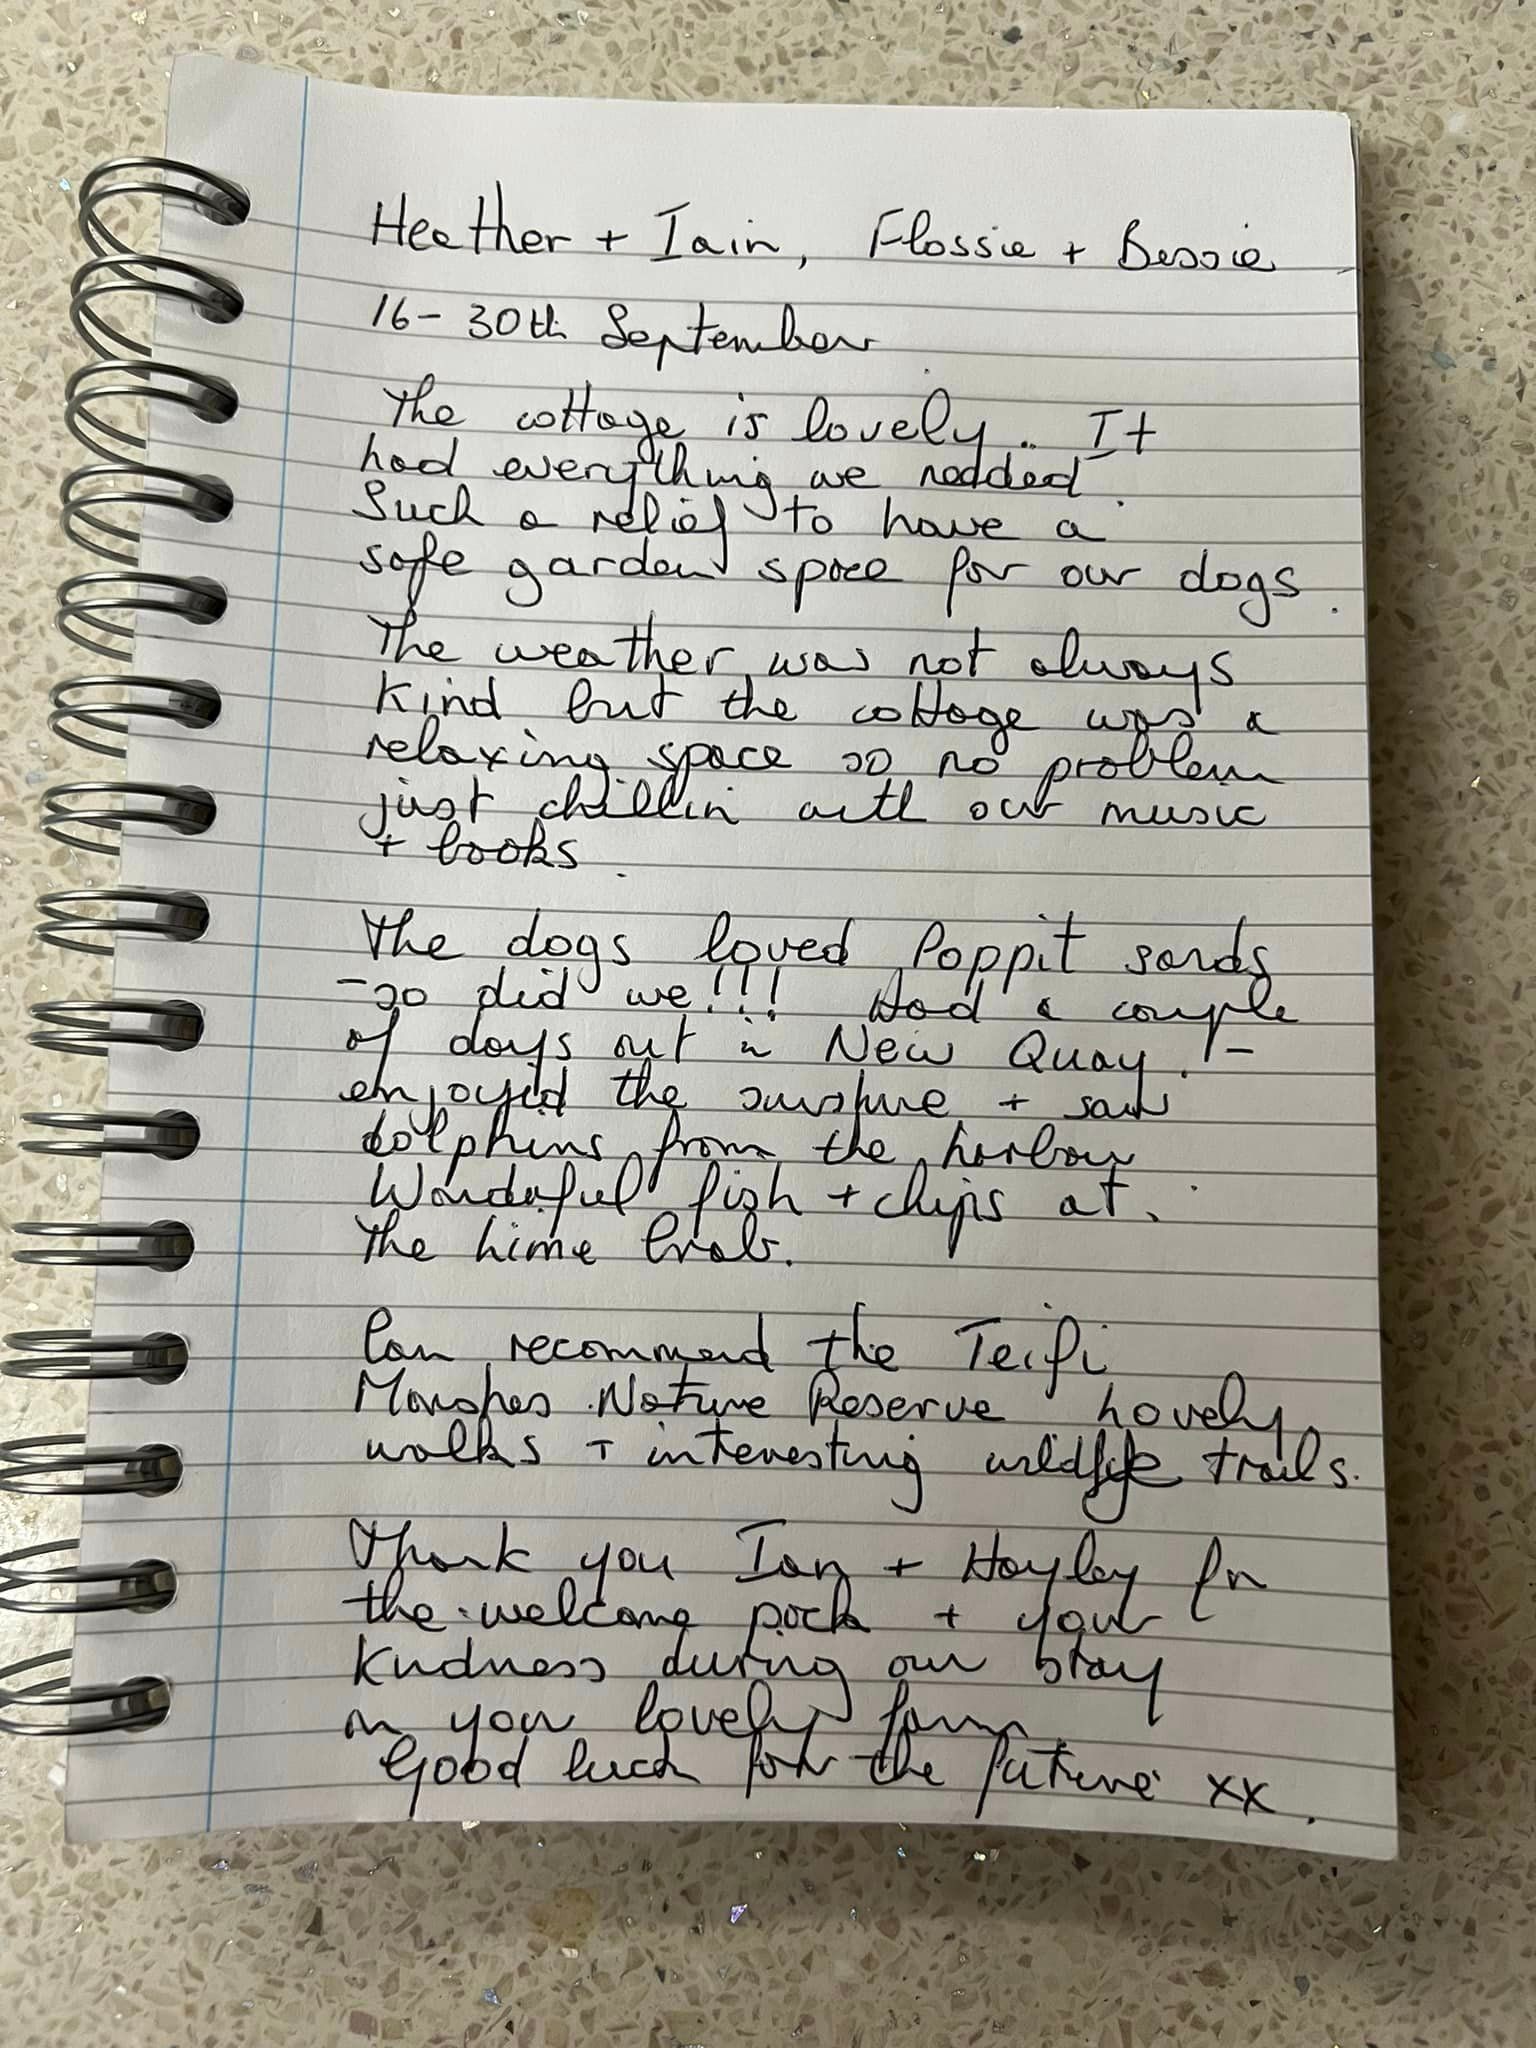 Heather + Iain, Flossie + Bessie
16-30th September
The cottage is lovely. It
had everything we nedded.
Such a relief to have a
safe garden space for our dogs.
The weather was not always
kind but the cottage was a
relaxing space so no problem
just chillin with our music
+ books.
The dogs loved Poppit sands
- so did we!!! Had a couple
of days out in New Quay! -
enjoyed the sunshine + saw
dolphins from the harbour
Wonderful fish + chips at
The Lime Crab.
Can recommend the Teifi
Marshes Nature Reserve Lovely
walks + interesting wildlife trails.
Thank you Ian + Hayley for
the welcome pack + your
kindness during our stay
on your lovely farm
Good luck for the future xx.